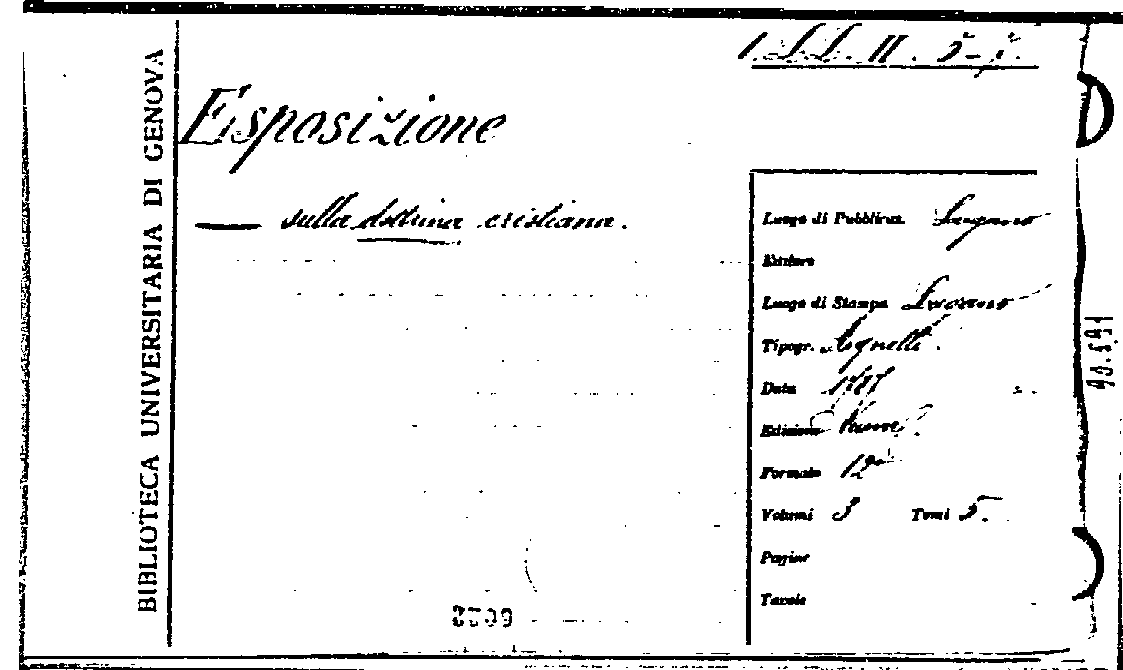 BIBLIOTECA UNIVERSITARIA DI GENOVA
Esposizione
— sulla dottrina cristiana.
Luogo di Pubblicaz. Lugano
Editore
Luogo di Stampa Lugano
Tipogr. Agnelli.
Data
Edizione
Formato 12º
Volumi 3 Tomi 5.
Pagine
Tavole